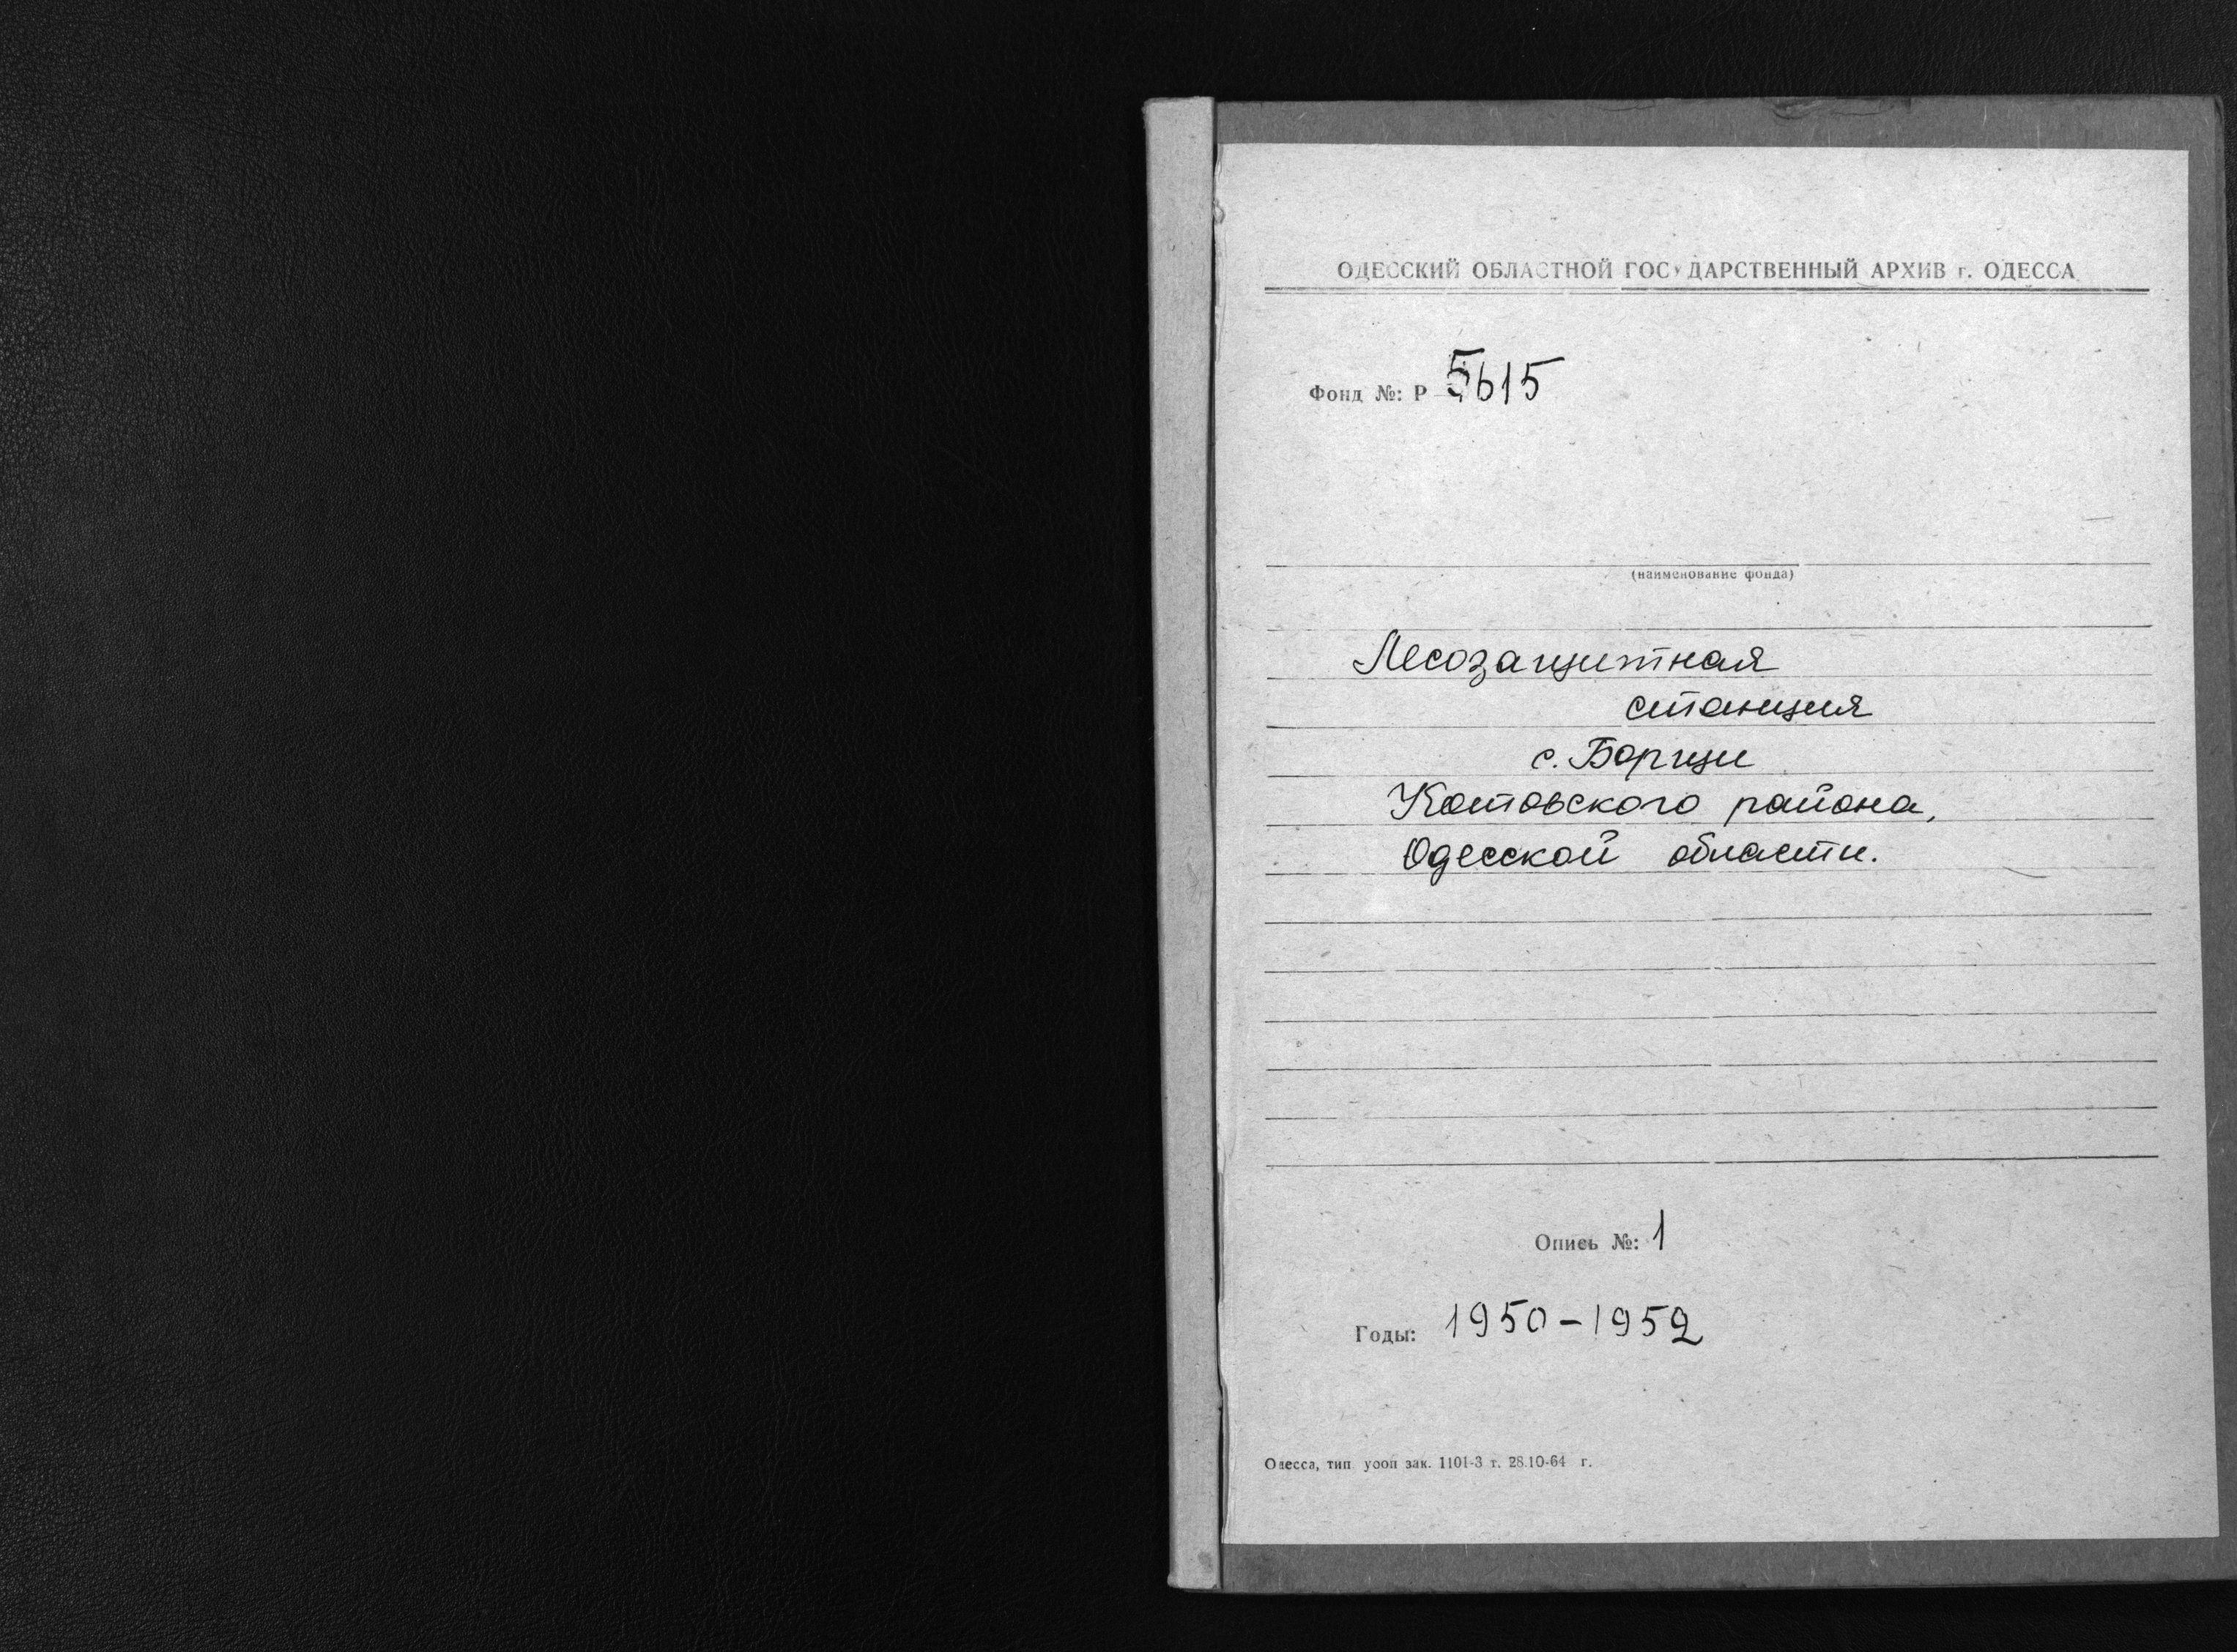 ОДЕССКИЙ ОБЛАСТНОЙ ГОСУДАРСТВЕННЫЙ АРХИВ г. ОДЕССА
Фонд №: Р 5615
(наименование фонда)
Лесозащитная
станция
с. Борщи
Котовского района,
Одесской области.
Опись №: 1
Годы: 1950-1952
Одесса, тип. уооп зак. 1101-3 т. 28.10-64 г.